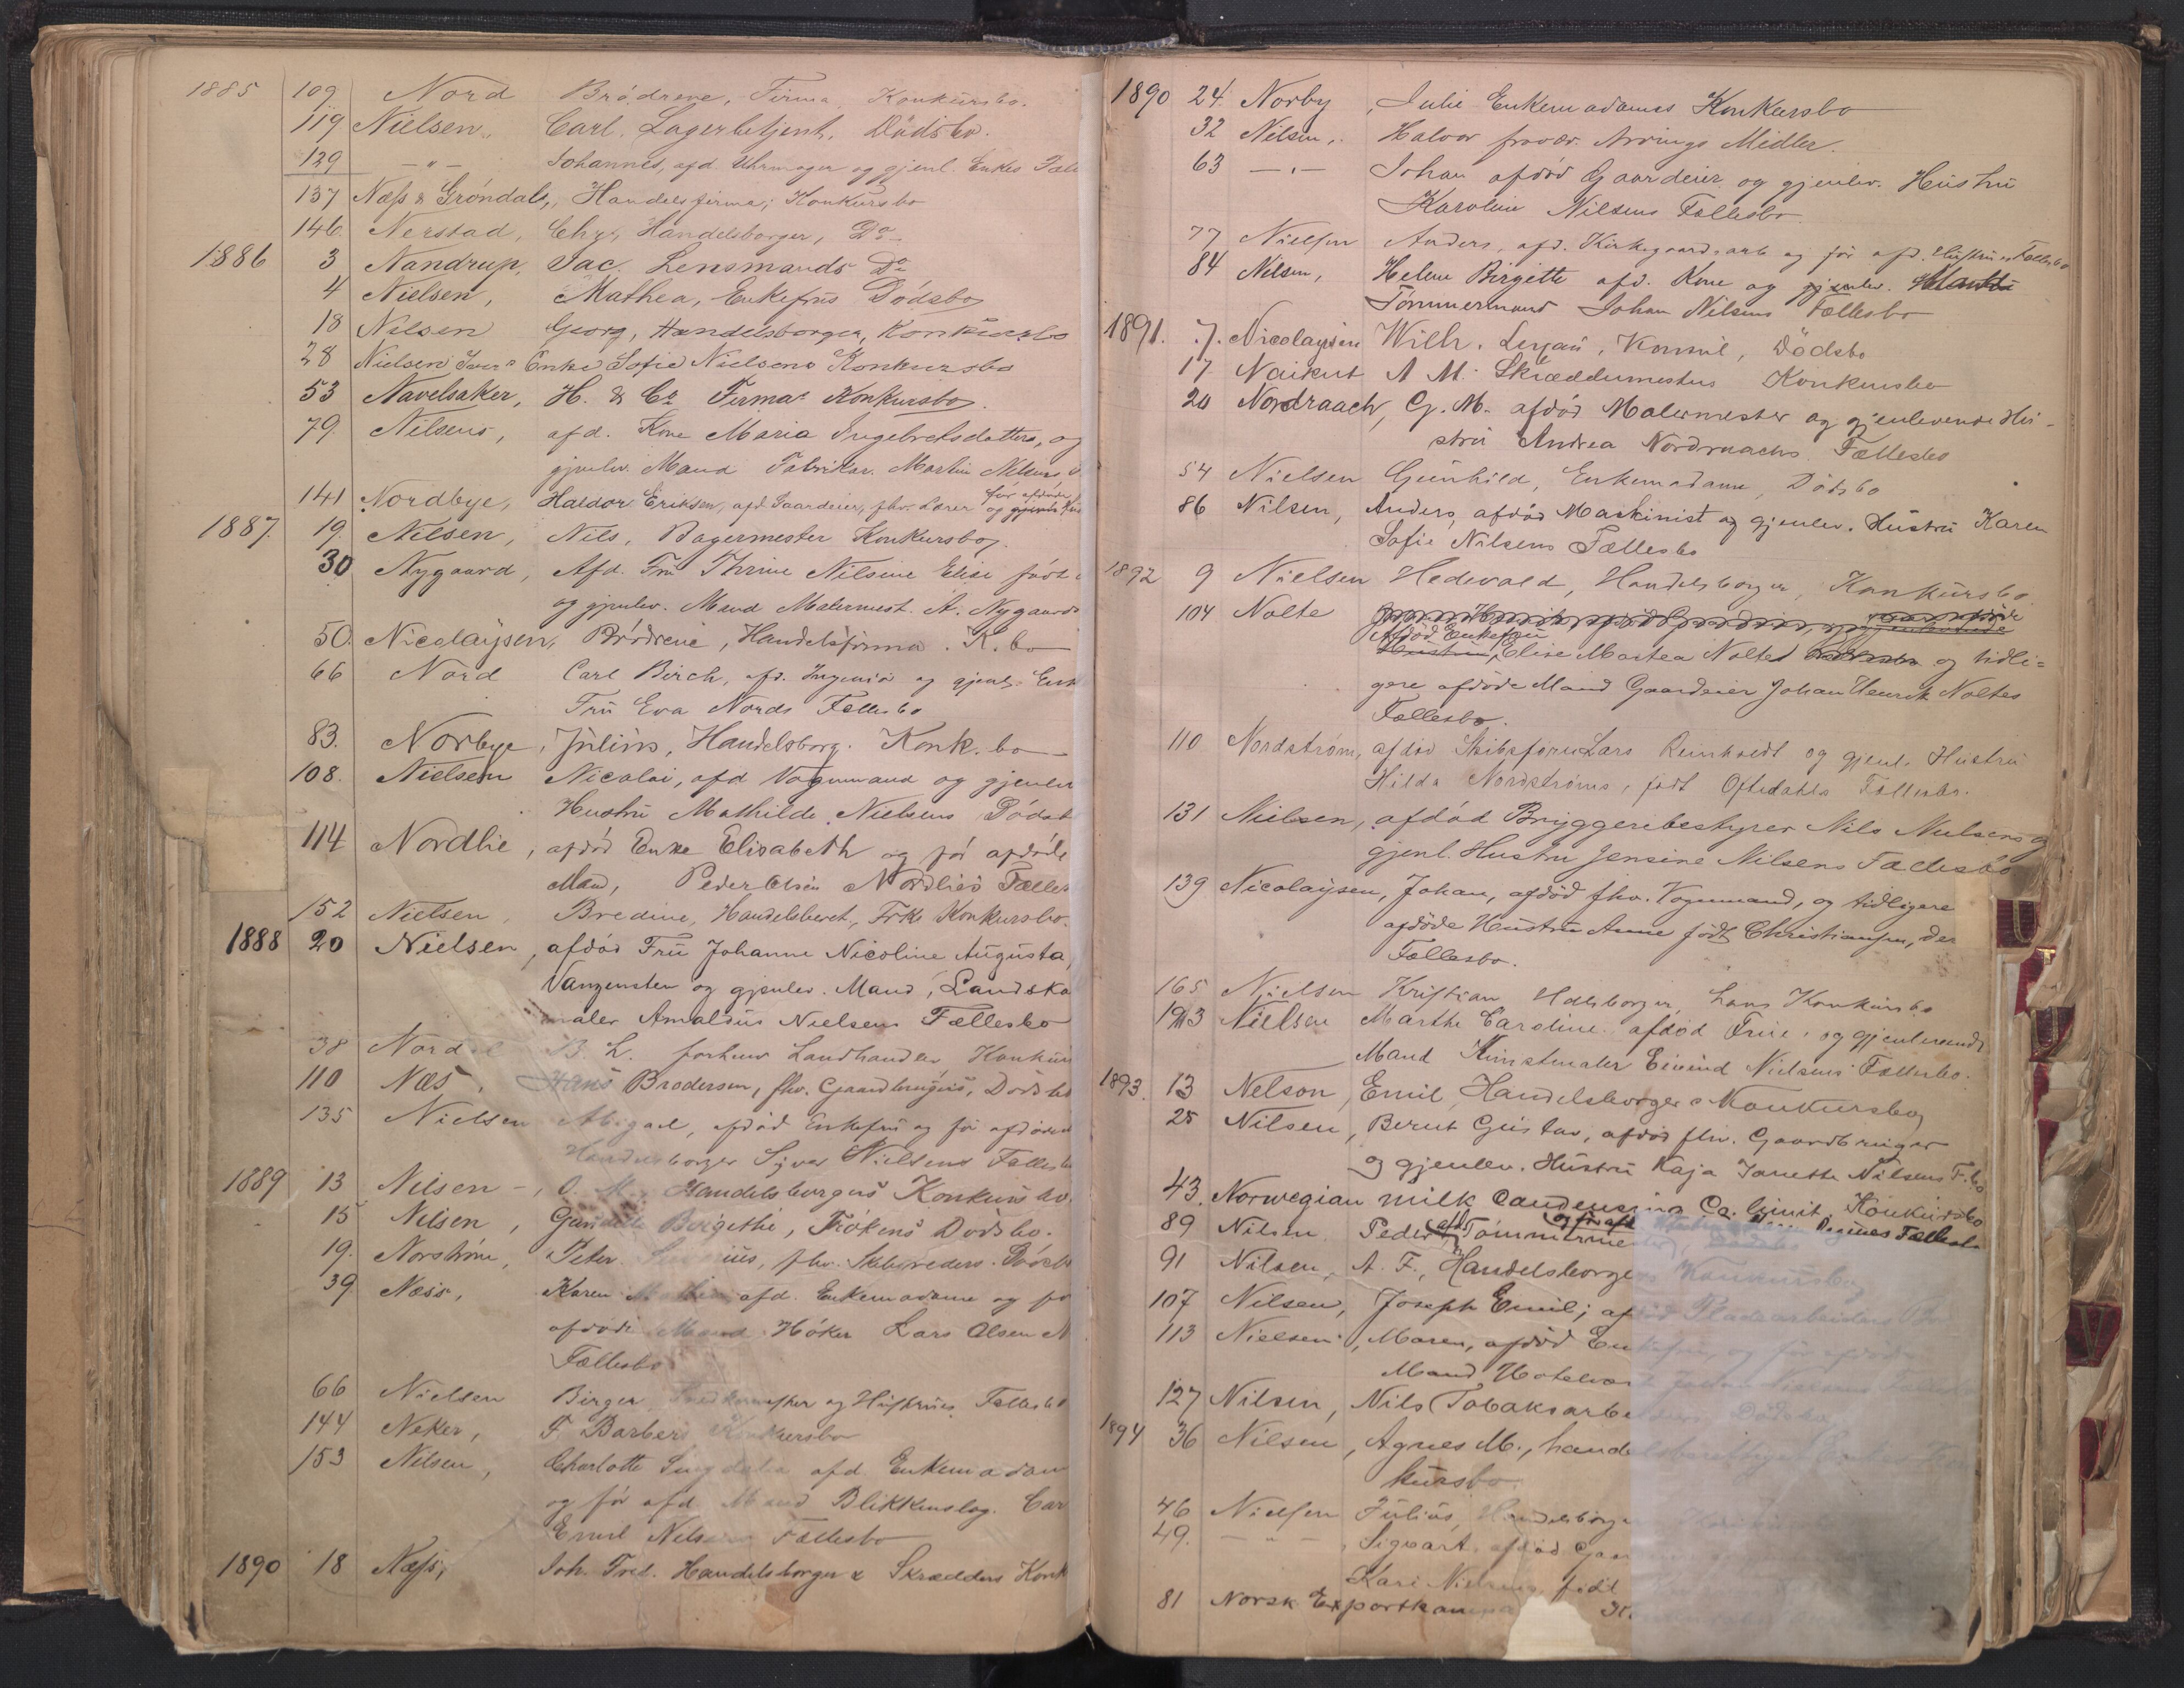 1885 109 Nord Brödrene, Firma, Konkursbo.
119 Nielsen, Carl, Lagerbetjent, Dödsbo.
129 —"— Johannes, afd. Uhrmager og gjenl. Enkes Fæll
137 Næss & Gröndahl, Handelsfirma, Konkursbo
146. Nerstad, Chr, Handelsborger, Do
1886 3 Nandrup, Jac. Lensmands Do
4 Nielsen, Mathea, Enkefrus Dödsbo
18 Nilsen Georg, Handelsborger, Konkursbo
28 Nielsen Enke Sofie Nielsens Konkursbo
53 Navelsaker, H. & Co Firmas Konkursbo.
79. Nilsens, afd. Kone Maria Ingebretsdatters, og
gjenlev. Mand Fabrikar. Martin Nilsens
141 Nordbye, Haldor Eriksen, afd. Gaardeier, fhv. Lærer
1887. 19. Nilsen, Nils, Bagermester Konkursbo.
30 Nygaard, Afd. Fru Thrine Nilsine Elise födt
og gjenlev. Mand Malermest. A. Nygaards
50. Nicolaysen, Brödrene, Handelsfirma. K. bo
66 Nord Carl Birch, afd. Ingeniör og gjenl. Enk
Fru Eva Nords Fællesbo
83. Norbye, Julius, Handelsborg. Konk. bo
108. Nielsen Nicolai, afd Vognmand og gjenlev
Hustru Mathilde Nielsens Dödsb
114 Nordlie, afdöd Enke Elisabeth og för afdöde
Mand, Peder Olsen Nordlies Fælles
152 Nielsen, Bredine, Handelsberet., Frk. Konkursbo.
1888 20 Nielsen, afdöd Fru Johanne Nicoline Augusta,
Vangensten og gjenlev. Mand, Landska
maler Amaldus Nielsens Fællesbo
38 Nord B. L. forhenv Landhandler Konkur
110 Næs, Hans Brodersen, fhv. Gaardbrugers, Dödsbo
135 Nielsen Abigael, afdöd Enkefru og för afdöde
Handelsborger Syver Nielsens Fællesb
1889 13 Nilsen, O. M. Handelsborgers Konkursbo.
15 Nilsen, Birgethe, Frökens Dödsbo.
19. Norström, Peter fhv. Skibsreders Dödsb
39 Næss, Karen afd. Enkemadame og fö
afdöde Mand Höker Lars Olsen N
Fællesbo
66 Nielsen Birger og Hustrues Fællesbo
144 Neker, F. Barbers Konkursbo
153 Nilsen, Charlotte afd. Enkemadam
og för afd. Mand Blikkenslag. Car
Emil Nilsens Fællesbo
1890 18 Næss, Joh. Fred. Handelsborger & Skrædders Konk
1890 24. Norby, Julie Enkemadames Konkursbo
32 Nilsen, Halvor fravær. Arvings Midler.
63 —"— Johan afdöd Gaardeier og gjenlev. Hustru
Karoline Nilsens Fællesbo.
77 Nielsen Anders, afd. Kirkegaardsarb og för afd. Hustrues Fællesbo
84 Nilsen, Helene Birgitte afd. Kone og gjenlev.
Tömmermand Johan Nilsens Fællesbo
1891. 7. Nicolaysen Wilh. Dödsbo
17 A M. Skræddermesters Konkursbo
20 Nordraach, G. M. afdöd Malermester og gjenlevende Hu-
stru Andrea Nordraachs Fællesbo
54 Nielsen Gunhild, Enkemadame, Dödsbo
86 Nilsen, Anders, afdöd Maskinist og gjenlev. Hustru Karen
Sofie Nilsens Fællesbo
1892 9 Nielsen Hedevald, Handelsborger, Konkursbo
104 Nolte
Afdöd Enkefru
Hustru, Elise Martea Noltes og tidli=
gere afdöde Mand Gaardeier Johan Henrik Noltes
Fællesbo.
110 Nordström, afdöd Skibsförer Lars Reinholdt og gjenl. Hustru
Hilda Nordströms, födt Oftedahls Fællesbo.
131 Nielsen, afdöd Bryggeribestyrer Nils Nielsens og
gjenl. Hustru Jensine Nilsens Fællesbo
139 Nicolaysen, Johan, afdöd fhv. Vognmand, og tidligere
afdöde Hustru Anne födt Christiansen, der
Fællesbo.
165 Nielsen Kristian Hdlsborger, Konkursbo
193 Nielsen Marthe Caroline, afdöd Frue, og gjenlevende
Mand Kunstmaler Eivind Nielsens Fællesbo.
1893. 13 Nelson, Emil, Handelsborgers Konkursbo
25 Nilsen, Bernt Gustav, afdöd fhv. Gaardbruger
og gjenlev. Hustru Kaja Janette Nilsens F. bo
43. Norwegian milk Candensing Co. limit. Konkursbo
89 Nilsen Peder, afd. Tömmerme og för afd. Fællesb
91 Nilsen, A. F., Handelsborgers Konkursbo
107 Nilsen, Joseph Emil, afdöd Pladsarbeiders
113 Nielsen, Maren, afdöd Enkefru, og för afdöde
Mand Hotelvær
127 Nilsen, Nils Tobaksarbeiders Dödsbo
1894 36 Nilsen, Agnes M., handel
kursbo.
46 Nielsen Julius, Handelsborger
49. —"— Sigvart, afdöd Gaar
Kari Nielsens födt
81 Norsk Exportkompa